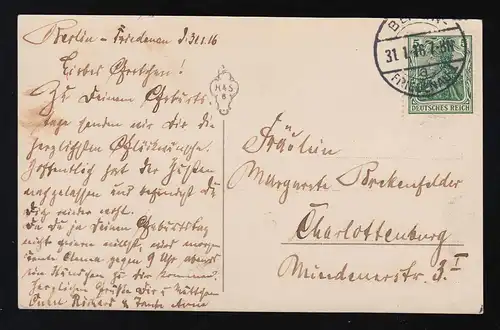 Berlin - Friedenau d. 31.1.16
Liebes Gretchen!
Zu Deinem Geburts-
tage senden wir Dir die
herzlichsten Glückwünsche.
Hoffentlich hat der Husten
nachgelassen und befindest Du
Dich wieder wohl.
Da Du ja Deinen Geburtstag
nicht feiern willst, wird morgen
Tante Emma gegen 9 Uhr abends
ein Stündchen zu Dir kommen.
Herzlichen Grüße Dir u.
Onkel Richard & Tante Anna
H&S
B
BERLIN-
31.1.16. 7-8N
a
FRIEDENAU
5 5
DEUTSCHES REICH
Fräulein
Margarete Brekenfelder
Charlottenburg
Mindenerstr. 3 I